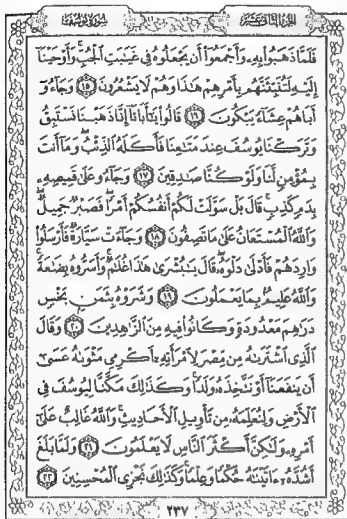 سورة يوسف
الجزء الثاني عشر
فَلَمَّا ذَهَبُوا۟ بِهِۦ وَأَجْمَعُوٓا۟ أَن يَجْعَلُوهُ فِى غَيَٰبَتِ ٱلْجُبِّ وَأَوْحَيْنَآ
إِلَيْهِ لَتُنَبِّئَنَّهُم بِأَمْرِهِمْ هَٰذَا وَهُمْ لَا يَشْعُرُونَ ١٥ وَجَآءُو
أَبَاهُمْ عِشَآءً يَبْكُونَ ١٦ قَالُوا۟ يَٰٓأَبَانَآ إِنَّا ذَهَبْنَا نَسْتَبِقُ
وَتَرَكْنَا يُوسُفَ عِندَ مَتَٰعِنَا فَأَكَلَهُ ٱلذِّئْبُ وَمَآ أَنتَ
بِمُؤْمِنٍ لَّنَا وَلَوْ كُنَّا صَٰدِقِينَ ١٧ وَجَآءُو عَلَىٰ قَمِيصِهِۦ
بِدَمٍ كَذِبٍ قَالَ بَلْ سَوَّلَتْ لَكُمْ أَنفُسُكُمْ أَمْرًا فَصَبْرٌ جَمِيلٌ
وَٱللَّهُ ٱلْمُسْتَعَانُ عَلَىٰ مَا تَصِفُونَ ١٨ وَجَآءَتْ سَيَّارَةٌ فَأَرْسَلُوا۟
وَارِدَهُمْ فَأَدْلَىٰ دَلْوَهُۥ قَالَ يَٰبُشْرَىٰ هَٰذَا غُلَٰمٌ وَأَسَرُّوهُ بِضَٰعَةً
وَٱللَّهُ عَلِيمٌۢ بِمَا يَعْمَلُونَ ١٩ وَشَرَوْهُ بِثَمَنٍۭ بَخْسٍ
دَرَٰهِمَ مَعْدُودَةٍ وَكَانُوا۟ فِيهِ مِنَ ٱلزَّٰهِدِينَ ٢٠ وَقَالَ
ٱلَّذِى ٱشْتَرَىٰهُ مِن مِّصْرَ لِٱمْرَأَتِهِۦٓ أَكْرِمِى مَثْوَىٰهُ عَسَىٰٓ
أَن يَنفَعَنَآ أَوْ نَتَّخِذَهُۥ وَلَدًا وَكَذَٰلِكَ مَكَّنَّا لِيُوسُفَ فِى
ٱلْأَرْضِ وَلِنُعَلِّمَهُۥ مِن تَأْوِيلِ ٱلْأَحَادِيثِ وَٱللَّهُ غَالِبٌ عَلَىٰٓ
أَمْرِهِۦ وَلَٰكِنَّ أَكْثَرَ ٱلنَّاسِ لَا يَعْلَمُونَ ٢١ وَلَمَّا بَلَغَ
أَشُدَّهُۥٓ ءَاتَيْنَٰهُ حُكْمًا وَعِلْمًا وَكَذَٰلِكَ نَجْزِى ٱلْمُحْسِنِينَ ٢٢
٢٣٧